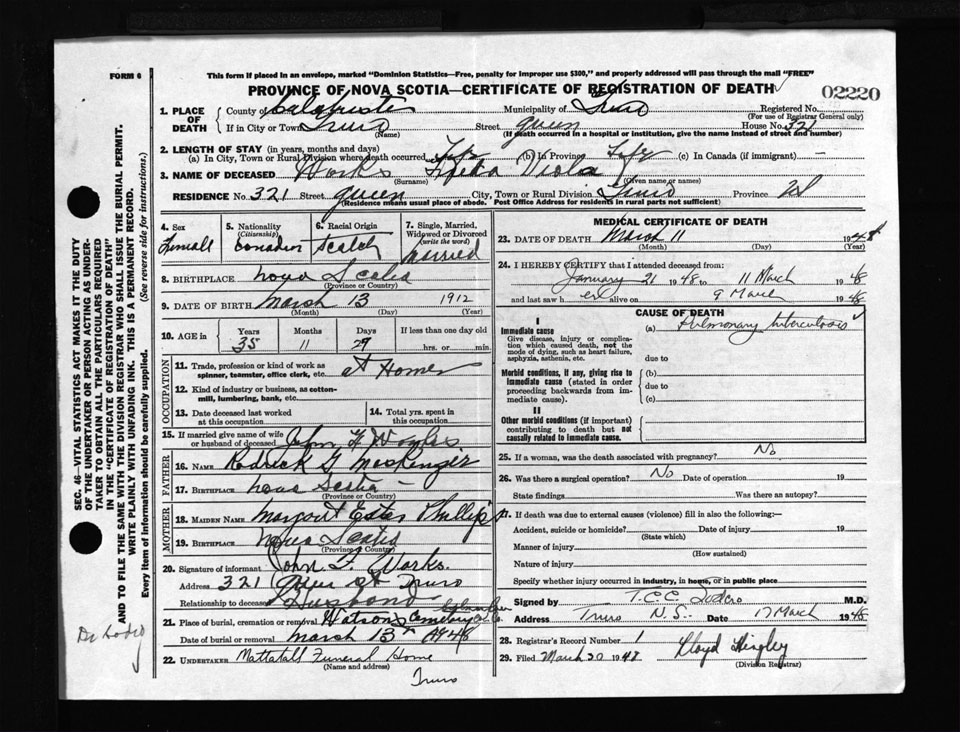 FORM 6
This form if placed in an envelope, marked "Dominion Statistics—Free, penalty for improper use $300," and properly addressed will pass through the mail "FREE"
PROVINCE OF NOVA SCOTIA—CERTIFICATE OF REGISTRATION OF DEATH
02220
1. PLACE OF DEATH
County of Municipality of Truro Registered No.
(For use of Registrar General only)
If in City or Town Truro Street Queen House No. 321
(Name) (If death occurred in a hospital or institution, give the name instead of street and number)
2. LENGTH OF STAY (in years, months and days)
(a) In City, Town or Rural Division where death occurred Life (b) In Province Life (c) In Canada (if immigrant) —
3. NAME OF DECEASED Works Viola
(Surname) (Given name or names)
RESIDENCE No. 321 Street Queen City, Town or Rural Division Truro Province NS
(Residence means usual place of abode. Post Office Address for residents in rural parts not sufficient)
4. Sex
5. Nationality (Citizenship)
6. Racial Origin Scotch
7. Single, Married, Widowed or Divorced (write the word) Married
8. BIRTHPLACE Nova Scotia
(Province or Country)
9. DATE OF BIRTH March 13 1912
(Month) (Day) (Year)
10. AGE in Years Months Days If less than one day old
35 11 29 hrs. or min.
OCCUPATION
11. Trade, profession or kind of work as spinner, teamster, office clerk, etc. at Home
12. Kind of industry or business, as cotton-mill, lumbering, bank, etc.
13. Date deceased last worked at this occupation
14. Total yrs. spent in this occupation
15. If married give name of wife or husband of deceased John F Works
FATHER
16. NAME Rodrick G MacKenzie
17. BIRTHPLACE Nova Scotia
(Province or Country)
MOTHER
18. MAIDEN NAME Margaret Phillips
19. BIRTHPLACE Nova Scotia
(Province or Country)
20. Signature of informant John F. Works.
Address 321 Queen St Truro
Relationship to deceased Husband
21. Place of burial, cremation or removal Watson Cemetery
Date of burial or removal March 13 1948
22. UNDERTAKER Mattatall Funeral Home
(Name and address)
Truro
MEDICAL CERTIFICATE OF DEATH
23. DATE OF DEATH March 11 1948
(Month) (Day) (Year)
24. I HEREBY CERTIFY that I attended deceased from:
January 21 1948 to 11 March 1948
and last saw her alive on 9 March 1948
CAUSE OF DEATH
I
Immediate cause (a) Pulmonary tuberculosis
Give disease, injury or complication which caused death, not the mode of dying, such as heart failure, asphyxia, asthenia, etc.
due to
Morbid conditions, if any, giving rise to immediate cause (stated in order proceeding backwards from immediate cause).
(b)
due to
(c)
II
Other morbid conditions (if important) contributing to death but not causally related to immediate cause.
25. If a woman, was the death associated with pregnancy? No
26. Was there a surgical operation? No Date of operation 19
State findings Was there an autopsy?
27. If death was due to external causes (violence) fill in also the following:—
Accident, suicide or homicide? Date of injury 19
(State which)
Manner of injury
(How sustained)
Nature of injury
Specify whether injury occurred in industry, in home, or in public place
Signed by M.D.
Address Truro N.S. Date 17 March 1948
28. Registrar's Record Number 1
29. Filed March 30 1948 Lloyd
(Division Registrar)
SEC. 46—VITAL STATISTICS ACT MAKES IT THE DUTY
OF THE UNDERTAKER OR PERSON ACTING AS UNDER-
TAKER TO OBTAIN ALL THE PARTICULARS REQUIRED
IN THE "CERTIFICATE OF REGISTRATION OF DEATH"
AND TO FILE THE SAME WITH THE DIVISION REGISTRAR WHO SHALL ISSUE THE BURIAL PERMIT.
WRITE PLAINLY WITH UNFADING INK. THIS IS A PERMANENT RECORD.
Every item of information should be carefully supplied. (See reverse side for instructions.)